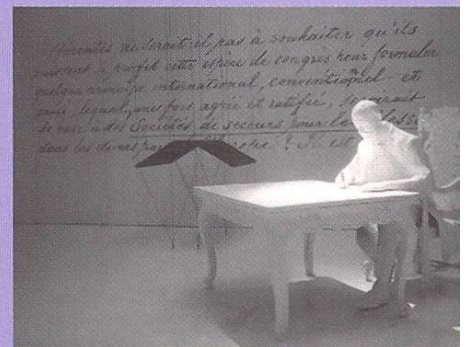 ne serait-il pas à souhaiter qu'ils
à profit cette espèce de congrès pour formuler
quelque principe international, conventionnel et
lequel, une fois agréé et ratifié, servirait
de base à des Sociétés de secours pour les bless
dans les divers pay rope ? Il est